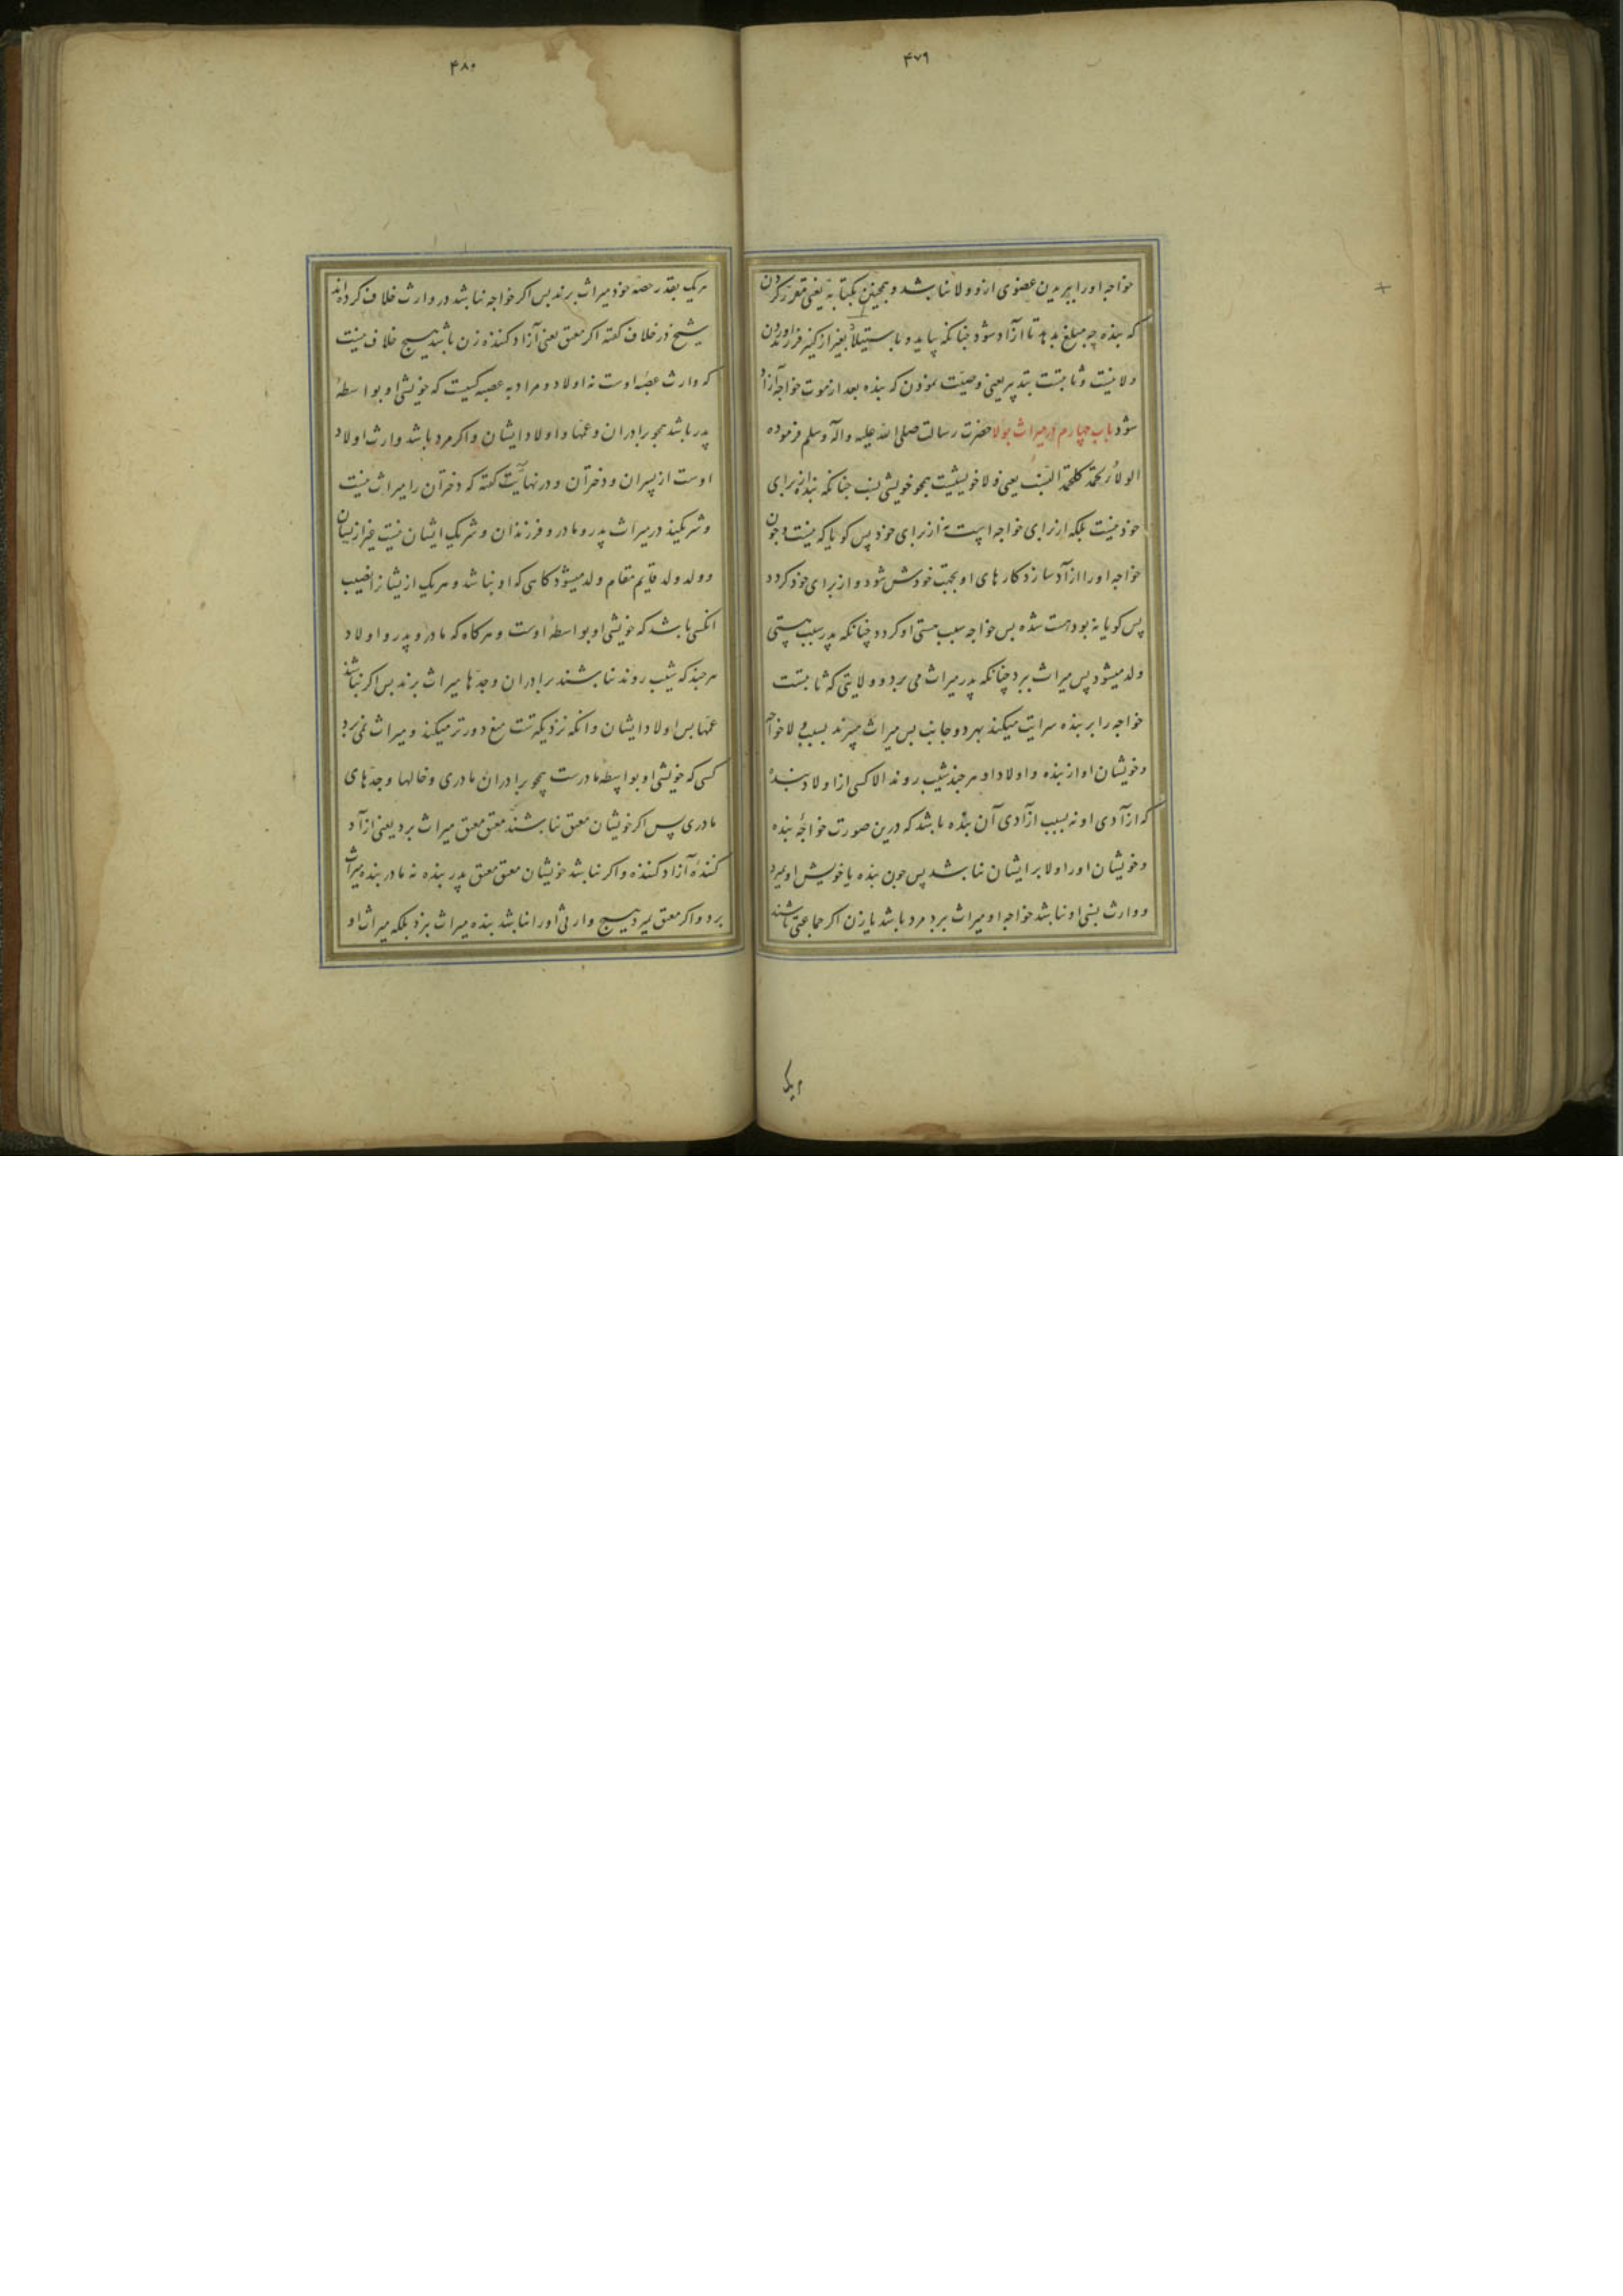 ۴۷۹
خواجه اورا ببریدن عضوی ازو ولا نباشد و همچنین بکتابة یعنی مقرر کردن
که بنده چه مبلغ بدهد تا آزاد شود جنانکه بیاید و باستیلاد بغیر از کنیز فرزند آوردن
ولا نیست و ثابتست بتدبیر یعنی وصیت نمودن که بنده بعد از موت خواجه آزاد
شود باب چهارم در میراث بولا حضرت رسالت صلی الله علیه واله وسلم فرموده
الولاء لحمة کلحمة النسب یعنی ولا خویشیست همجو خویشی نسب جنانکه بنده از برای
خود نیست بلکه از برای خواجه است نه از برای خود پس کویا که نیست و جون
خواجه اورا ازآد سازد کارهای او بجهت خودش شود و از برای خود کردد
پس کویا نه بود هست شده بس خواجه سبب هستی او کردد چنانکه پدر سبب هستی
ولد میشود پس میراث برد چنانکه پدر میراث می برد و ولایتی که ثابتست
خواجه را بر بنده سرایت میکند بهر دو جانب بس میراث میبرند بسبب ولا خواجه
وخویشان او از بنده و اولاد او هر جند شیب روند الا کسی از اولاد بنده
که ازآدی او نه بسبب ازآدی آن بنده باشد که درین صورت خواجهٔ بنده
وخویشان اورا ولا بر ایشان نباشد پس جون بنده یا خویش او میرد
و وارث نسبی او نباشد خواجه او میراث برد مرد باشد یا زن اکر جماعتی باشند
هریک
۴۸۰
هریک بقدر حصهٔ خود میراث برند بس اکر خواجه نباشد در وارث خلاف کرده‌اند
شیخ در خلاف کفته اکر معتق یعنی آزاد کننده زن باشد هیچ خلاف نیست
که وارث عصبهٔ اوست نه اولاد و مراد به عصبه کسیت که خویشی او بواسطهٔ
پدر باشد همجو برادران و عمها و اولاد ایشان و اکر مرد باشد وارث اولاد
اوست از پسران و دختران و در نهایت کفته که دختران را میراث نیست
و شریکند در میراث پدر و مادر و فرزندان و شریک ایشان نیست غیر از ایشان
و ولد ولد قایم مقام ولد میشود کاهی که او نباشد و هریک از یشانرا نصیب
انکسی باشد که خویشی او بواسطهٔ اوست و هرکاه که مادر و پدر و اولاد
هرجند که شیب روند نباشند برادران و جدها میراث برند بس اکر نباشند
عمها بس اولاد ایشان و انکه نزدیکترست منع دورتر میکند و میراث نمی برد
کسی که خویشی او بواسطهٔ مادرست همجو برادران مادری و خالها و جدهای
مادری پس اکر خویشان معتق نباشند معتق معتق میراث برد یعنی ازآد
کنندهٔ آزاد کننده و اکر نباشد خویشان معتق معتق پدر بنده نه مادر بنده میراث
برد و اکر معتق میرد هیچ وارثی اورا نباشد بنده میراث نبرد بلکه میراث او